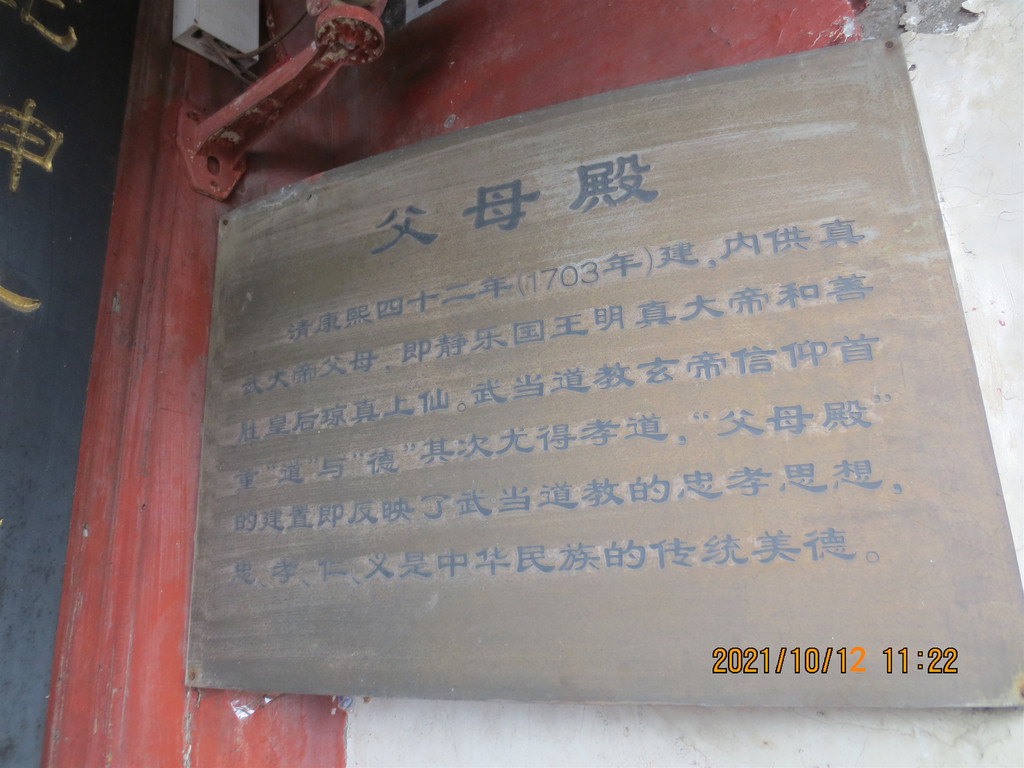 父母殿
清康熙四十二年(1703年)建,内供真
武大帝父母,即静乐国王明真大帝和善
胜皇后琼真上仙。武当道教玄帝信仰首
重“道”与“德”其次尤得孝道,“父母殿”
的建置即反映了武当道教的忠孝思想,
忠、孝、仁、义是中华民族的传统美德。
2021/10/12 11:22